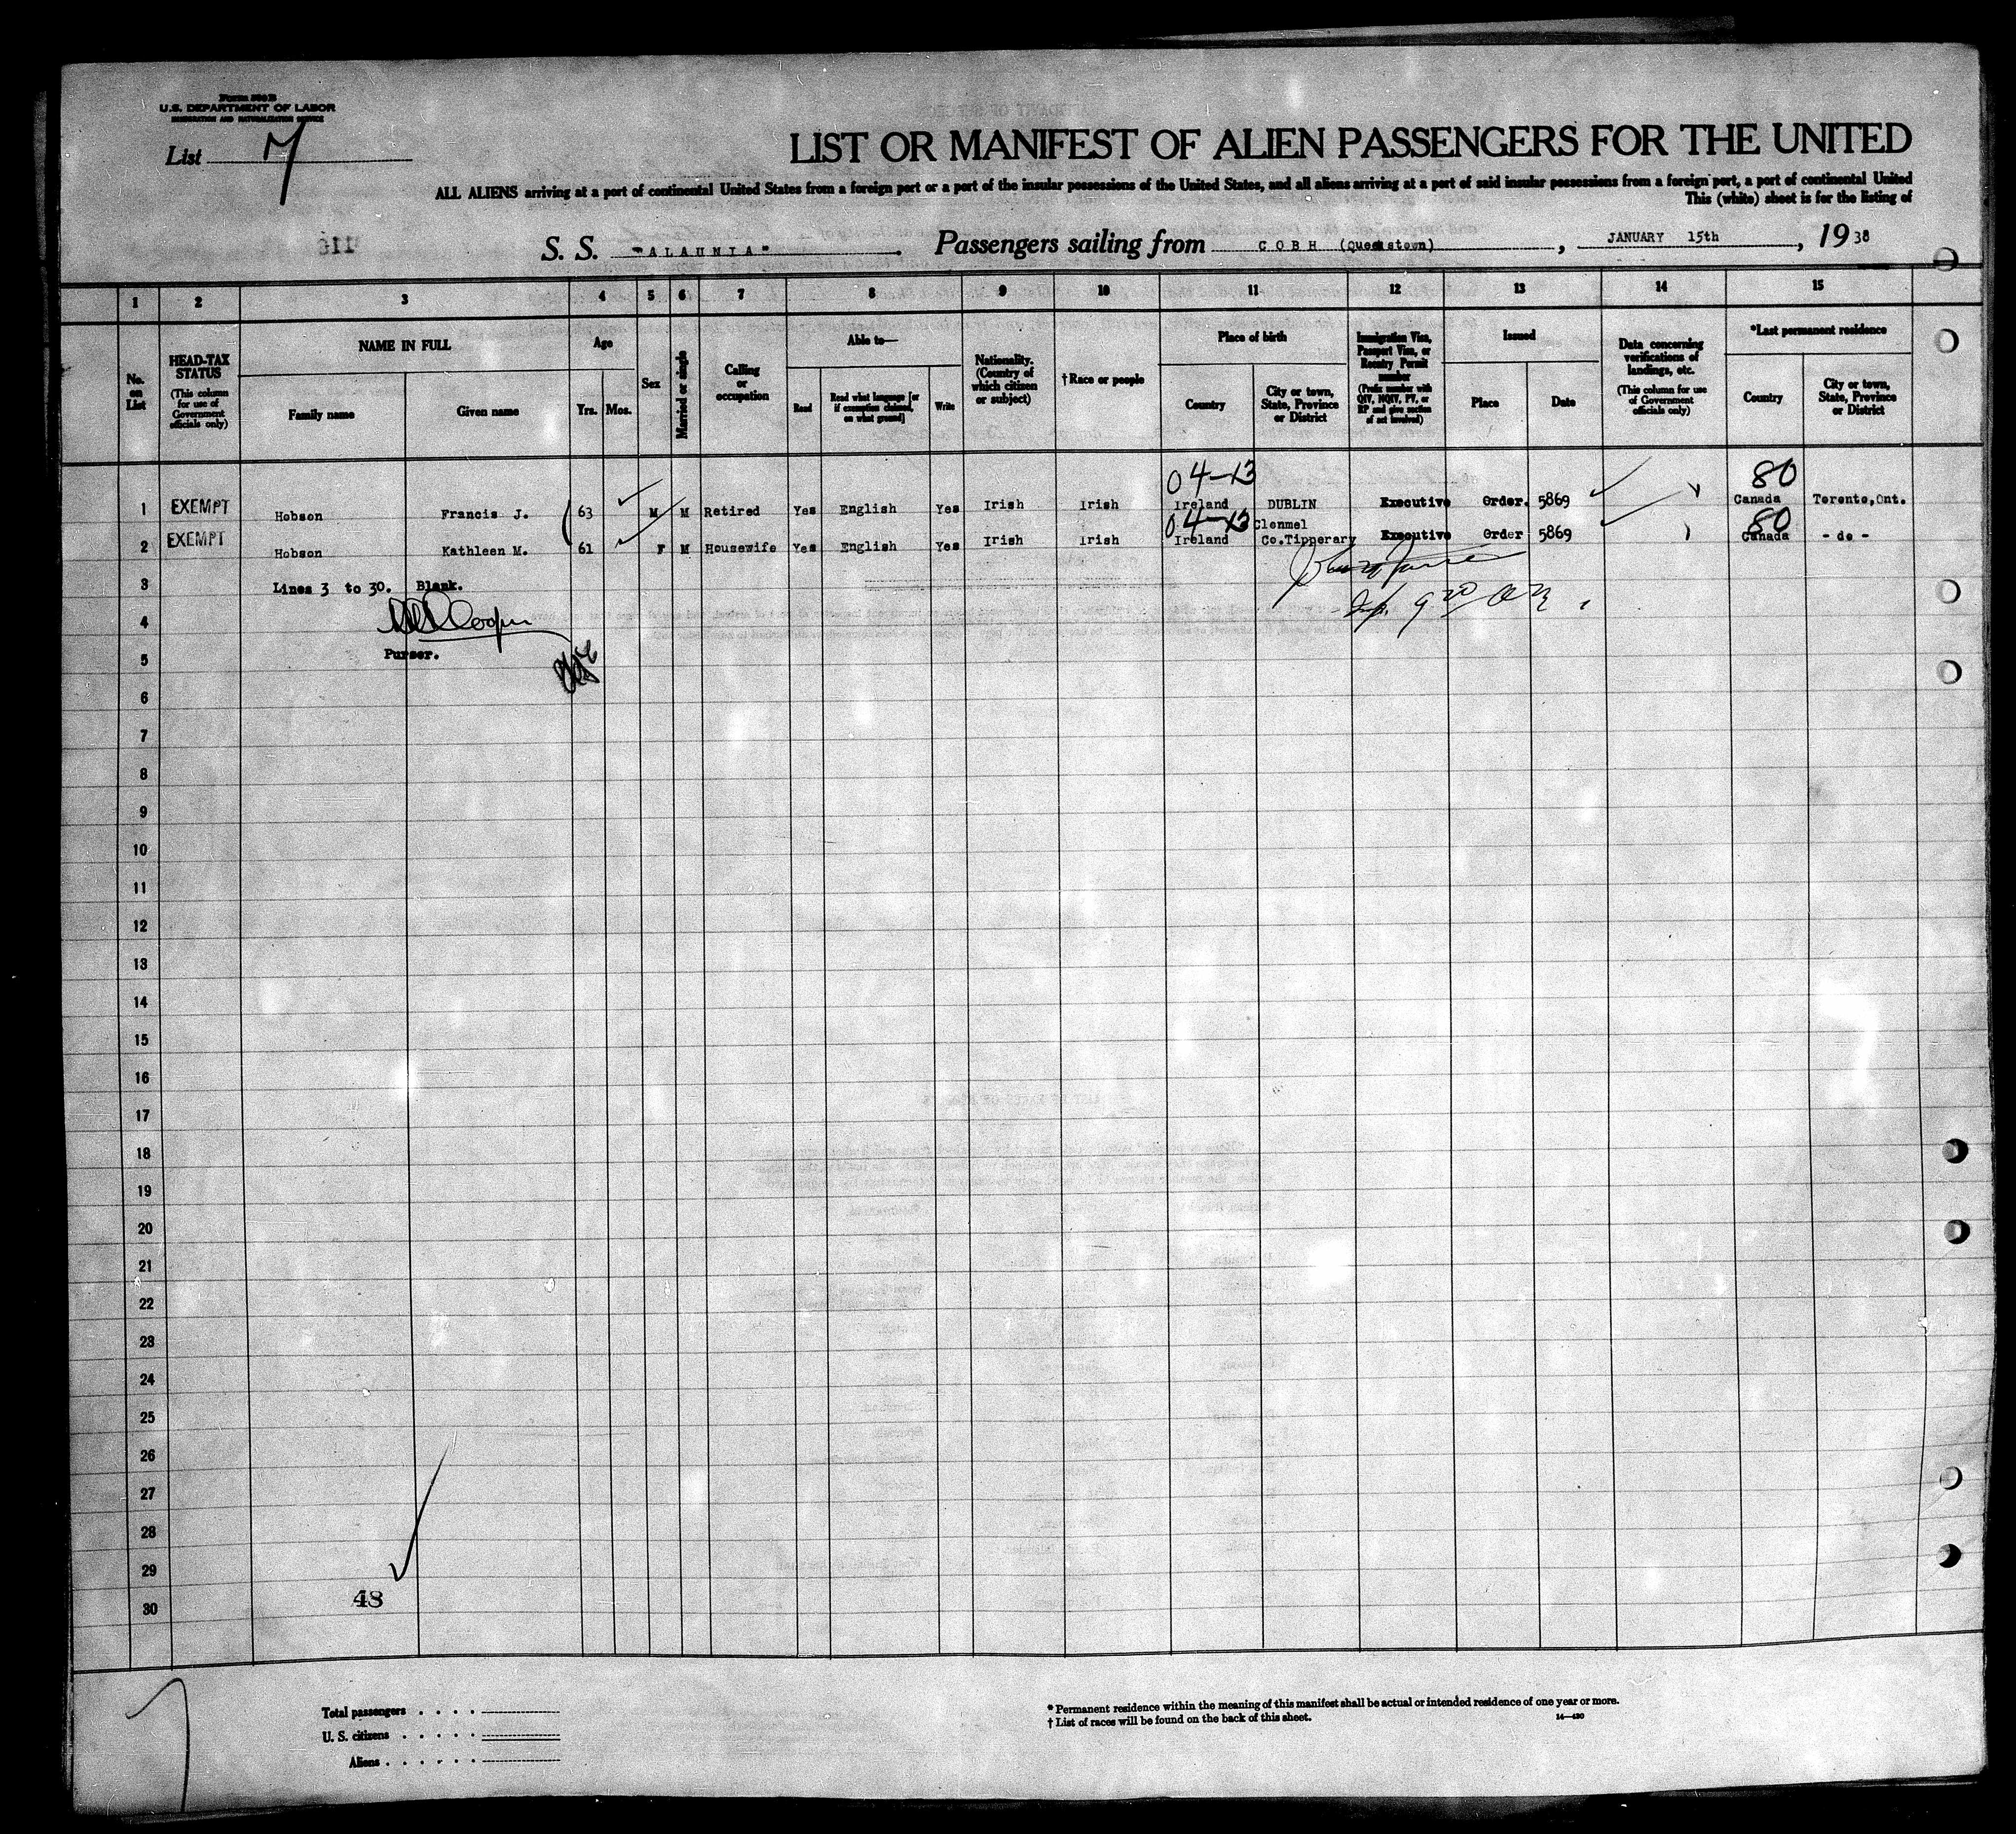 Form 500 B
U.S. DEPARTMENT OF LABOR
IMMIGRATION AND NATURALIZATION SERVICE
List 7
LIST OR MANIFEST OF ALIEN PASSENGERS FOR THE UNITED
ALL ALIENS arriving at a port of continental United States from a foreign port or a port of the insular possessions of the United States, and all aliens arriving at a port of said insular possessions from a foreign port, a port of continental United
This (white) sheet is for the listing of
S. S. "ALAUNIA" Passengers sailing from COBH (Queenstown), JANUARY 15th, 1938
1 2 3 4 5 6 7 8 9 10 11 12 13 14 15
No. on List
HEAD-TAX STATUS (This column for use of Government officials only)
NAME IN FULL
Family name Given name
Age
Yrs. Mos.
Sex
Married or single
Calling or occupation
Able to—
Read Read what language [or if exemption claimed, on what ground] Write
Nationality. (Country of which citizen or subject)
†Race or people
Place of birth
Country City or town, State, Province or District
Immigration Visa, Passport Visa, or Reentry Permit number (Prefix number with QIV, NQIV, PV, or RP and give section of act involved)
Issued
Place Date
Data concerning verifications of landings, etc. (This column for use of Government officials only)
*Last permanent residence
Country City or town, State, Province or District
04-13 80
1 EXEMPT Hobson Francis J. 63 M M Retired Yes English Yes Irish Irish Ireland DUBLIN Executive Order. 5869 Canada Toronto,Ont.
04-13 Clonmel 80
2 EXEMPT Hobson Kathleen M. 61 F M Housewife Yes English Yes Irish Irish Ireland Co.Tipperary Executive Order 5869 Canada - do -
3 Lines 3 to 30. Blank.
4 Cooper
Purser.
5
6
7
8
9
10
11
12
13
14
15
16
17
18
19
20
21
22
23
24
25
26
27
28
29
48
30
Total passengers
U. S. citizens
Aliens
* Permanent residence within the meaning of this manifest shall be actual or intended residence of one year or more.
† List of races will be found on the back of this sheet.
14—430